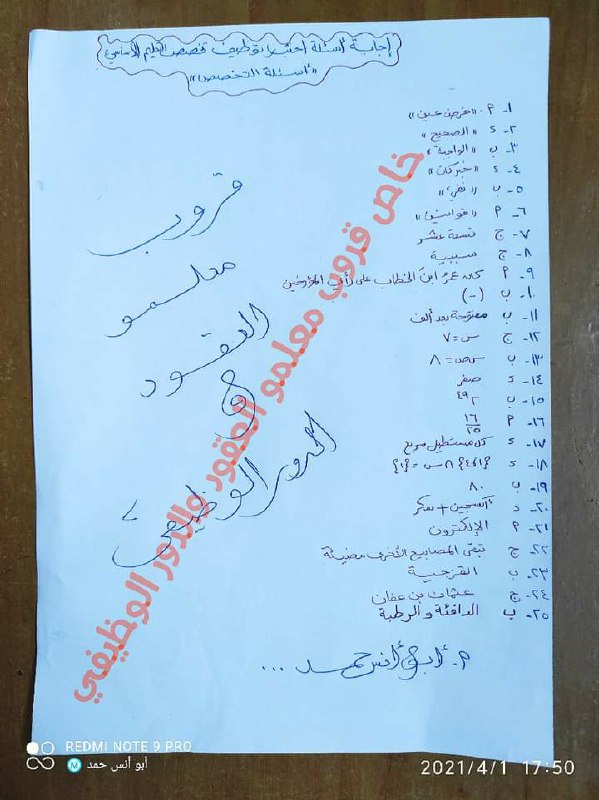 إجابة أسئلة اختبار توظيف تخصص التعليم الأساسي
« أسئلة التخصص »
١- م « فرض عين »
٢- د « الصحيح »
٣- ب « الواحة »
٤- د « خبر كان »
٥- ب « نهي »
٦- م « قوانين »
٧- ج تسعة عشر
٨- ج سببية
٩- م كان عمرُ ابنَ الخطاب على رأي المؤرخين
١٠- ب (-)
١١- ب مفتوحة بعد ألف
١٢- ج س = ٧
١٣- ب س ص = ٨
١٤- د صفر
١٥- ب ٤٩٢
١٦- م ١٦/٢٥
١٧- د كل مستطيل مربع
١٨- د
١٩- ب ٨٠
٢٠- د أكسجين + سكر
٢١- م الإلكترون
٢٢- ج تبقى المصابيح الأخرى مضيئة
٢٣- ب القزحية
٢٤- ج عثمان بن عفان
٢٥- ب الدافئة والرطبة
قروب
معلمو
العقود
و
الدور الوظيفي
خاص قروب معلمو العقود والدور الوظيفي
م. أبو أنس حمد ...
REDMI NOTE 9 PRO
ابو أنس حمد
2021/4/1 17:50